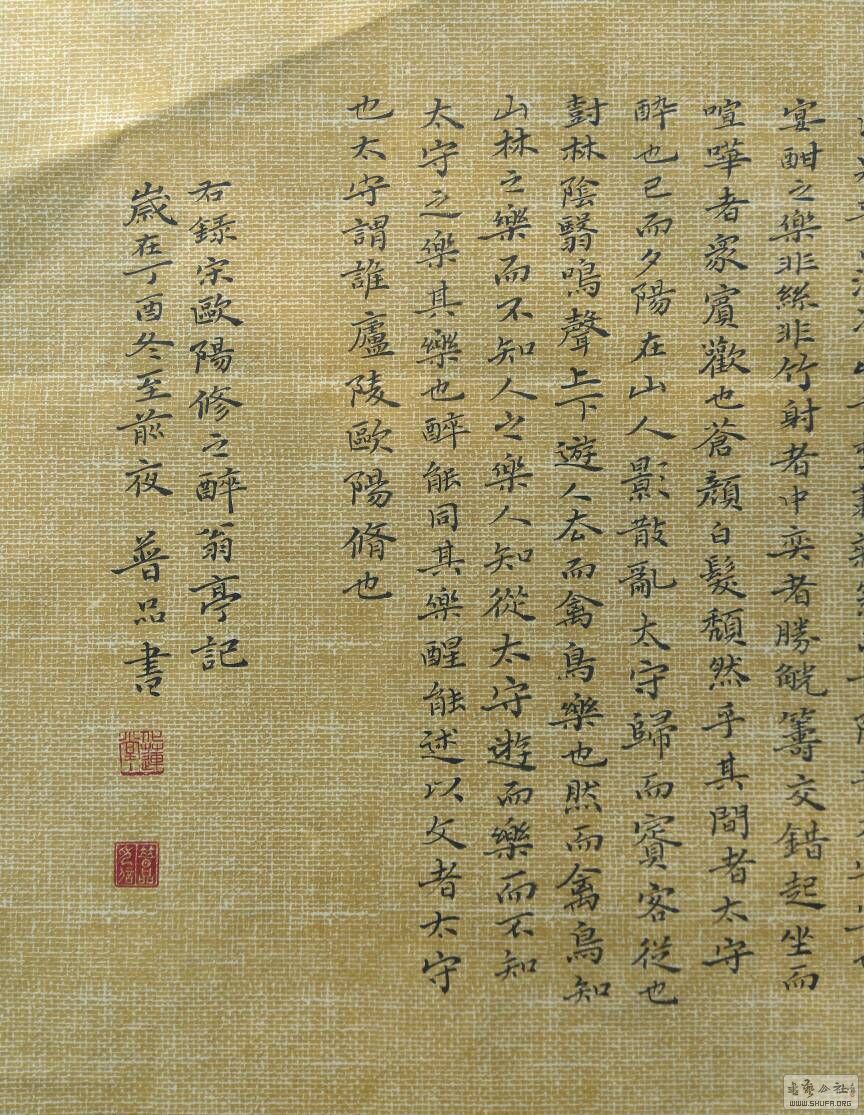 宴酣之樂非絲非竹射者中奕者勝觥籌交錯起坐而
喧嘩者衆賓歡也蒼顏白髮頹然乎其間者太守
醉也已而夕陽在山人影散亂太守歸而賓客從也
尌林陰翳鳴聲上下遊人去而禽鳥樂也然而禽鳥知
山林之樂而不知人之樂人知從太守遊而樂而不知
太守之樂其樂也醉能同其樂醒能述以文者太守
也太守謂誰廬陵歐陽脩也
右錄宋歐陽修之醉翁亭記
歲在丁酉冬至前夜 普品書
書藝公社
WWW.SHUFA.ORG